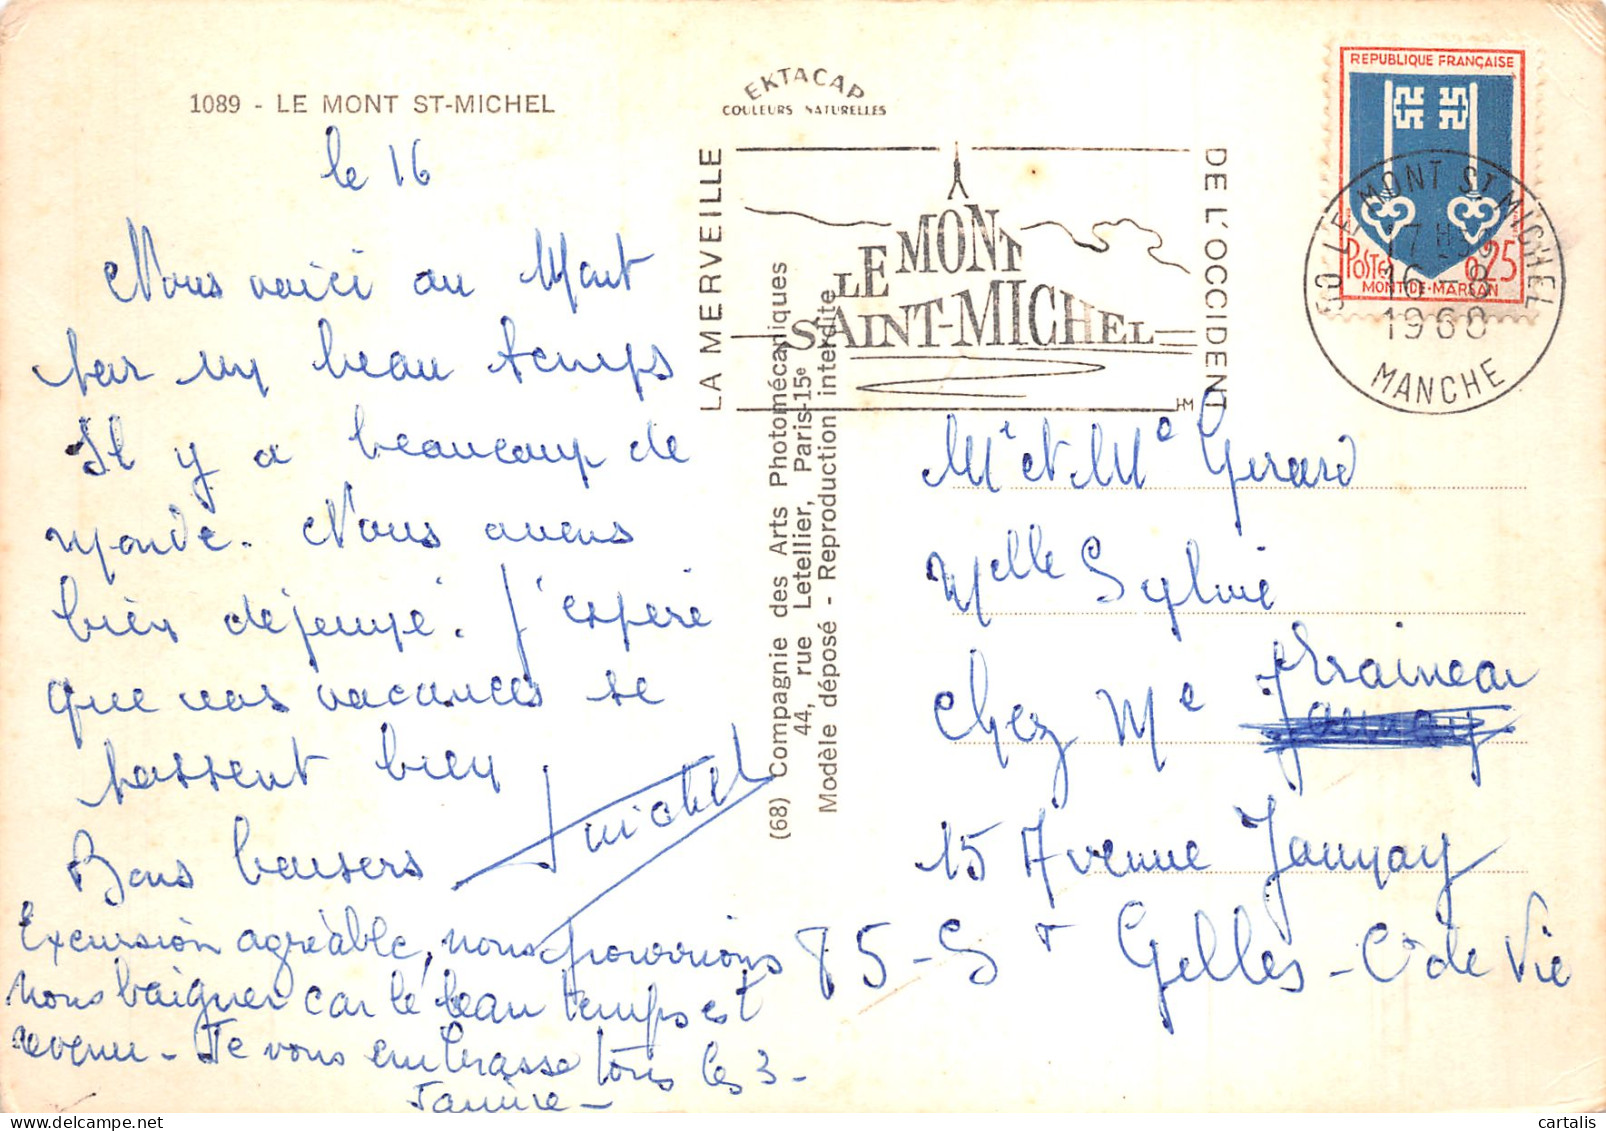 1089 - LE MONT ST-MICHEL
le 16
Nous voici au Mont
par un beau temps
Il y a beaucoup de
monde. Nous avons
bien déjeuné. J'espère
que vos vacances se
passent bien
Bons baisers Michel
Excursion agréable, nous pourrions
nous baigner car le beau temps est
revenu - Je vous embrasse tous les 3 -
Janine -
EKTACAP
COULEURS NATURELLES
LA MERVEILLE
LE MONT
SAINT-MICHEL
DE L'OCCIDENT
HM
(68) Compagnie des Arts Photomécaniques
44, rue Letellier, Paris-15e
Modèle déposé - Reproduction interdite
REPUBLIQUE FRANÇAISE
POSTES 0,25
MONT-DE-MARSAN
50 LE MONT ST MICHEL
17H
16 - 8
1968
MANCHE
Mr et Me Gerard
Melle Sylvie
Chez Me
15 Avenue Jaunay
85 - St Gilles - C. de Vie
cartalis.com